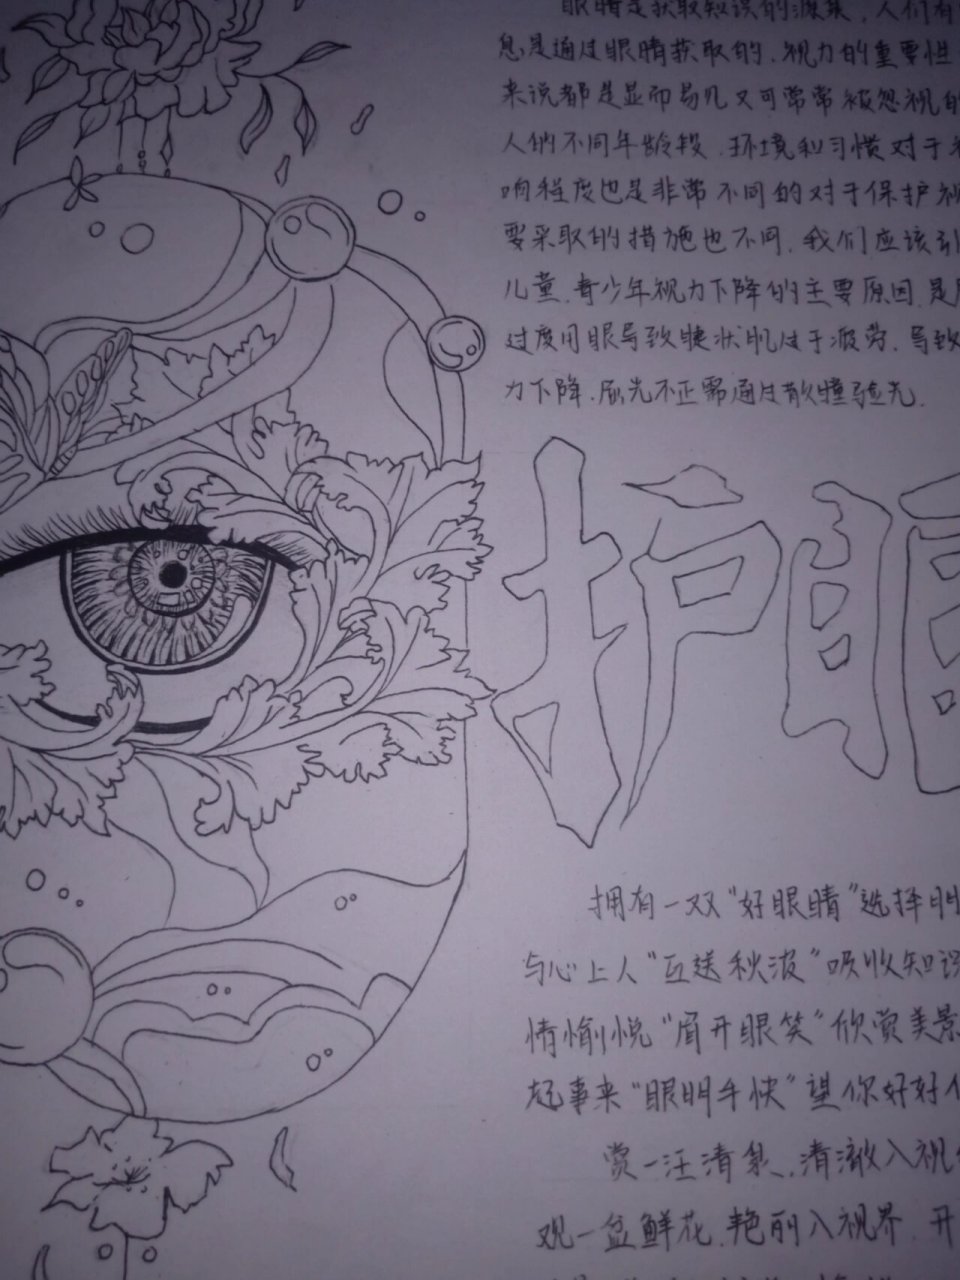 眼睛是获取知识的源泉，人们有
息是通过眼睛获取的，视力的重要性
来说都是显而易见又可常常被忽视的
人们不同年龄段，环境和习惯对于
响程度也是非常不同的对于保护视
要采取的措施也不同，我们应该引
儿童，青少年视力下降的主要原因，是
过度用眼导致睫状肌过于疲劳，导致
力下降，屈光不正需通过散瞳验光.
护眼
拥有一双“好眼睛”选择明
与心上人“互送秋波”吸收知识
情愉悦“眉开眼笑”欣赏美景
起事来“眼明手快”望你好好
赏一汪清泉，清澈入视
观一盆鲜花，艳丽入视界，开